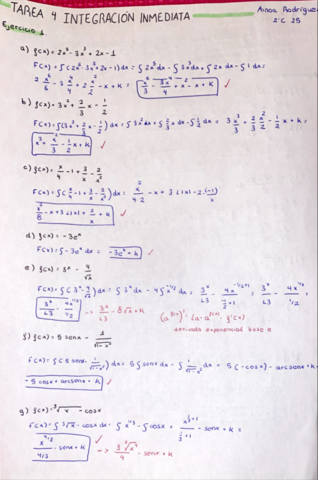 TAREA 4 INTEGRACIÓN INMEDIATA
Ainoa Rodríguez
2ºC 25
Ejercicio 1
a) f(x) = 2x⁵ - 3x³ + 2x - 1
F(x) = ∫(2x⁵ - 3x³ + 2x - 1)dx = ∫2x⁵dx - ∫3x³dx + ∫2x dx - ∫1dx =
2 x⁶/6 - 3 x⁴/4 + 2 x²/2 - x + K = x⁶/3 - 3x⁴/4 + x² - x + K
b) f(x) = 3x² + 2/3 x - 1/2
F(x) = ∫(3x² + 2/3 x - 1/2)dx = ∫3x²dx + ∫2/3 x dx - ∫1/2 dx = 3x³/3 + 2/3 x²/2 - 1/2 x + K =
x³ + x²/3 - 1/2 x + K
c) f(x) = x/4 - 1 + 3/x - 2/x²
F(x) = ∫(x/4 - 1 + 3/x - 2/x²)dx = x²/4·2 - x + 3 L|x| - 2·(-1)/x
x²/8 - x + 3L|x| + 2/x + K
d) f(x) = -3eˣ
F(x) = ∫-3eˣ dx = -3eˣ + K
e) f(x) = 3ˣ - 4/√x
F(x) = ∫(3ˣ - 4/√x)dx = ∫3ˣ dx - 4∫x^-1/2 dx = 3ˣ/L3 - 4x^-1/2+1/-1/2+1 = 3ˣ/L3 - 4x^1/2/1/2 =
3ˣ/L3 - 4x^1/2/1/2 -> 3ˣ/L3 - 8√x + K
derivada exponencial base a
f) f(x) = 5 senx - 1/√1-x²
F(x) = ∫(5 senx - 1/√1-x²)dx = 5∫senx dx - ∫1/√1-x² = 5(-cosx) - arcsenx + K =
-5 cosx + arcsenx + K
g) f(x) = ³√x - cosx
F(x) = ∫³√x - cosx dx = ∫x^1/3 - ∫cosx = x^1/3+1/1/3+1 - senx + K =
x^4/3/4/3 - senx + K -> 3 ³√x⁴/4 - senx + K